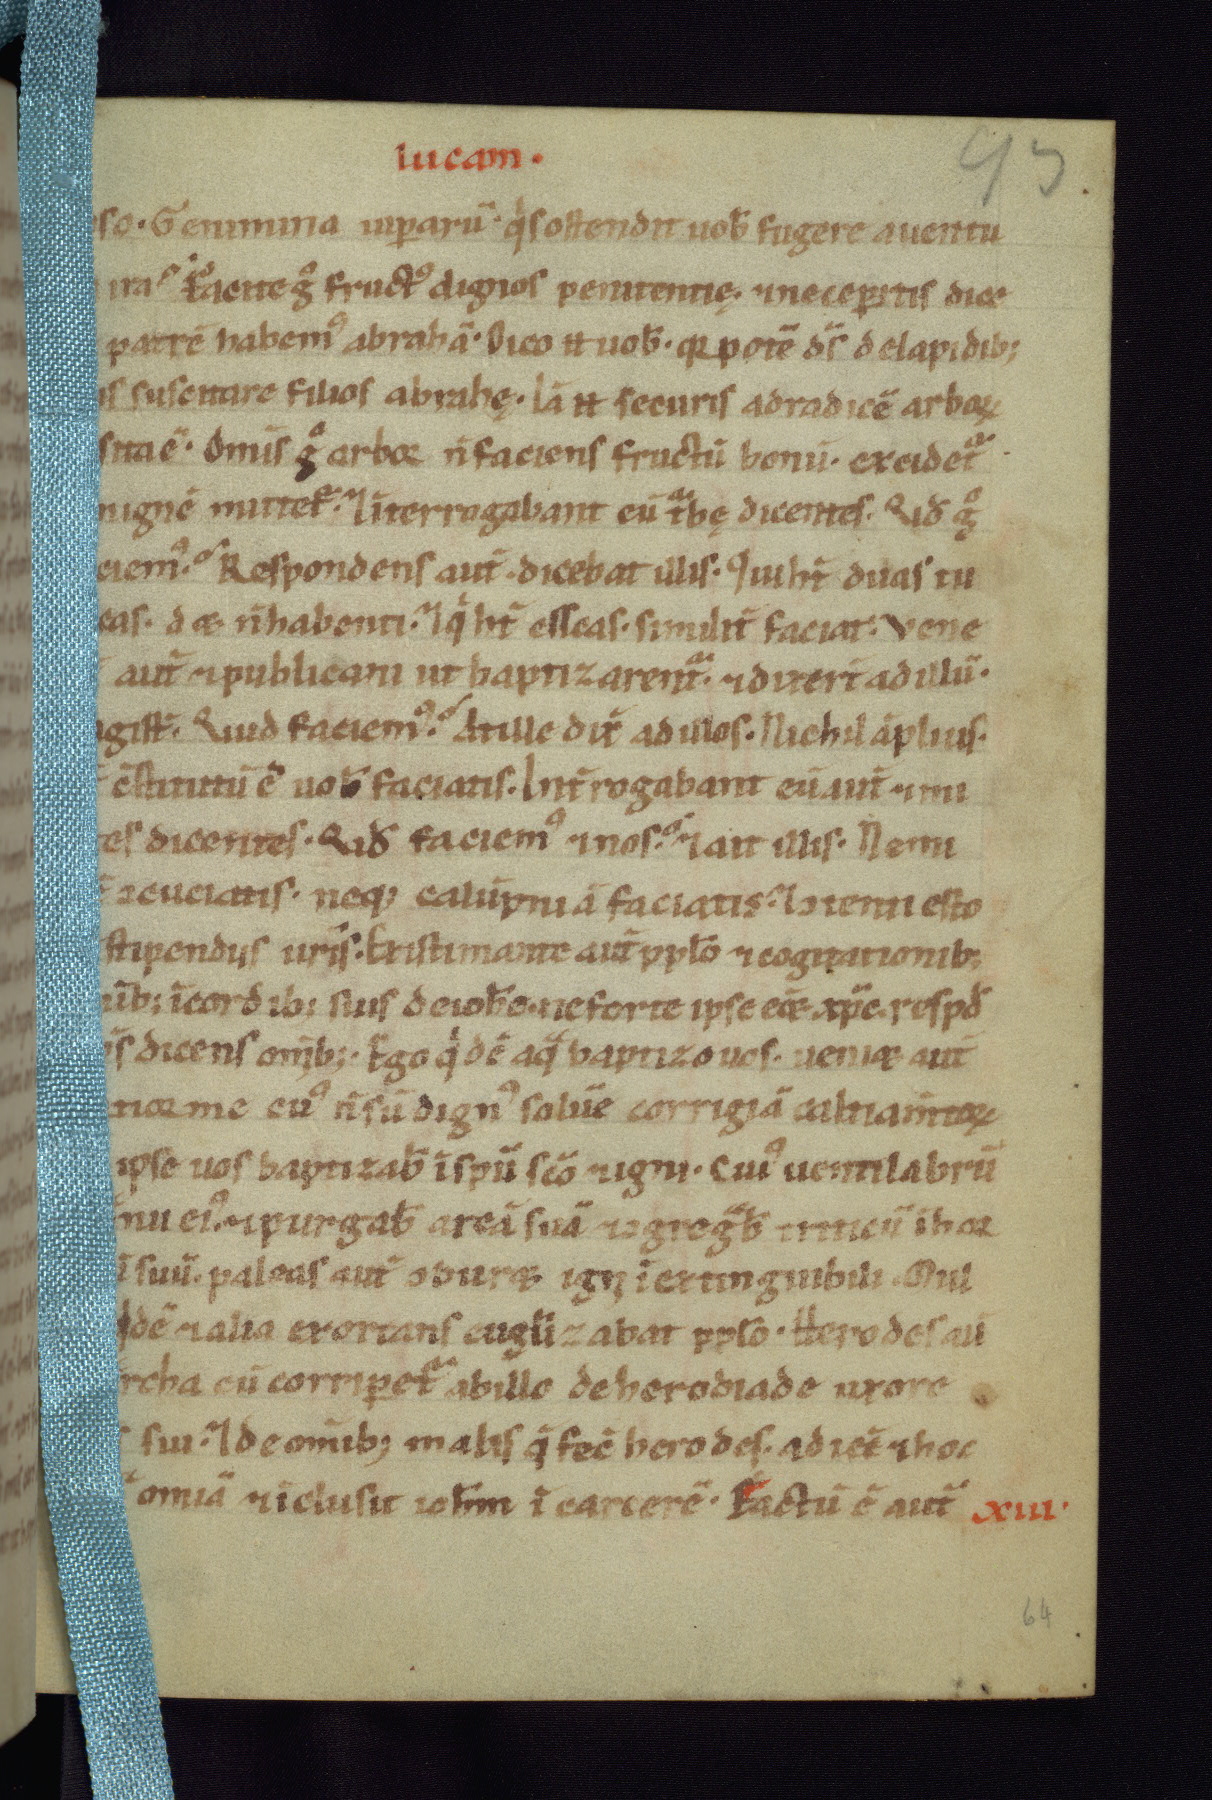 lucam.
so. Genimina uiparũ. qͥs ostendit uob̄ fugere a uentu
ira? Facite gͦ fructꝰ dignos penitentię. ⁊ ne ceperitis dice
patrē habemꝰ abrahā. Dico tt uob̄. qꝛ potē ds̄ de lapidib;
suscitare filios abrahę. Iā tt securis ad radicē arboꝝ
sita ē. Omīs gͦ arbor n̄ faciens fructū bonū. excidet᷑
ignē mittet᷑. ⁊ īterrogabant eū t᷑bę dicentes. Qid̄ gͦ
ciemꝰ? Respondens aut̄. dicebat illis. Qui ht̄ duas tu
cas. det n̄ habenti. ⁊ qͥ ht̄ escas. similit̄ faciat. Vene
aut̄ ⁊ publicani ut baptizarent᷑. ⁊ dixert̄ ad illū.
agist̄. Quid faciemꝰ? At ille dix̄ ad illos. Nichil āplius.
ꝯstitutū ē uob̄ faciatis. Int̄rogabant eū aut̄ ⁊ mi
tes dicentes. Qid̄ faciemꝰ ⁊ nos? ⁊ ait illis. Nemi
ꝯcuciatis. neq; calūpniā faciatis. ⁊ ꝯtenti esto
stipendijs ur̄is. Existimante aut̄ pplo̅ ⁊ cogitationib;
nib; ī cordib; suis de ioħe. ne forte ipse eet xp̄c. respd̄
dicens om̄ib;. Ego qͥdē aqͣ baptizo uos. ueniet aut̄
tior me cuꝰ n̄ sū dignꝰ soluē corrigiā caltiamtoꝝ
ipse uos baptizab̄ ī spū scō ⁊ igni. Cuiꝰ uentilabrū
nu eiꝰ. ⁊ purgab̄ areā suā ⁊ ꝯgregͣb̄ triticū ī hor
ī suū. paleas aut̄ ꝯburet igni īextinguibili. Mul
qͥdē ⁊ alia exortans eugl̄izabat pplo̅. Herodes au̅
rcha cū corriperet᷑ ab illo de herodiade uxore
sui. ⁊ de om̄ib; malis q̄ fec̄ herodes. adiec̄ ⁊ hoc
omiā ⁊ īclusit ioħm ī carcerē. Factū ē aut̄ xiii.
64